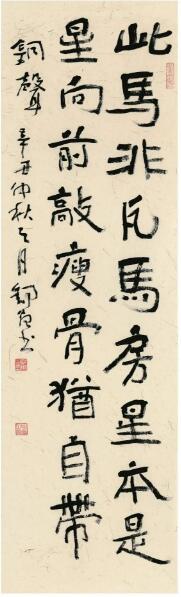 此馬非凡馬房星本是
星向前敲瘦骨猶自帶
銅聲 辛丑仲秋之月